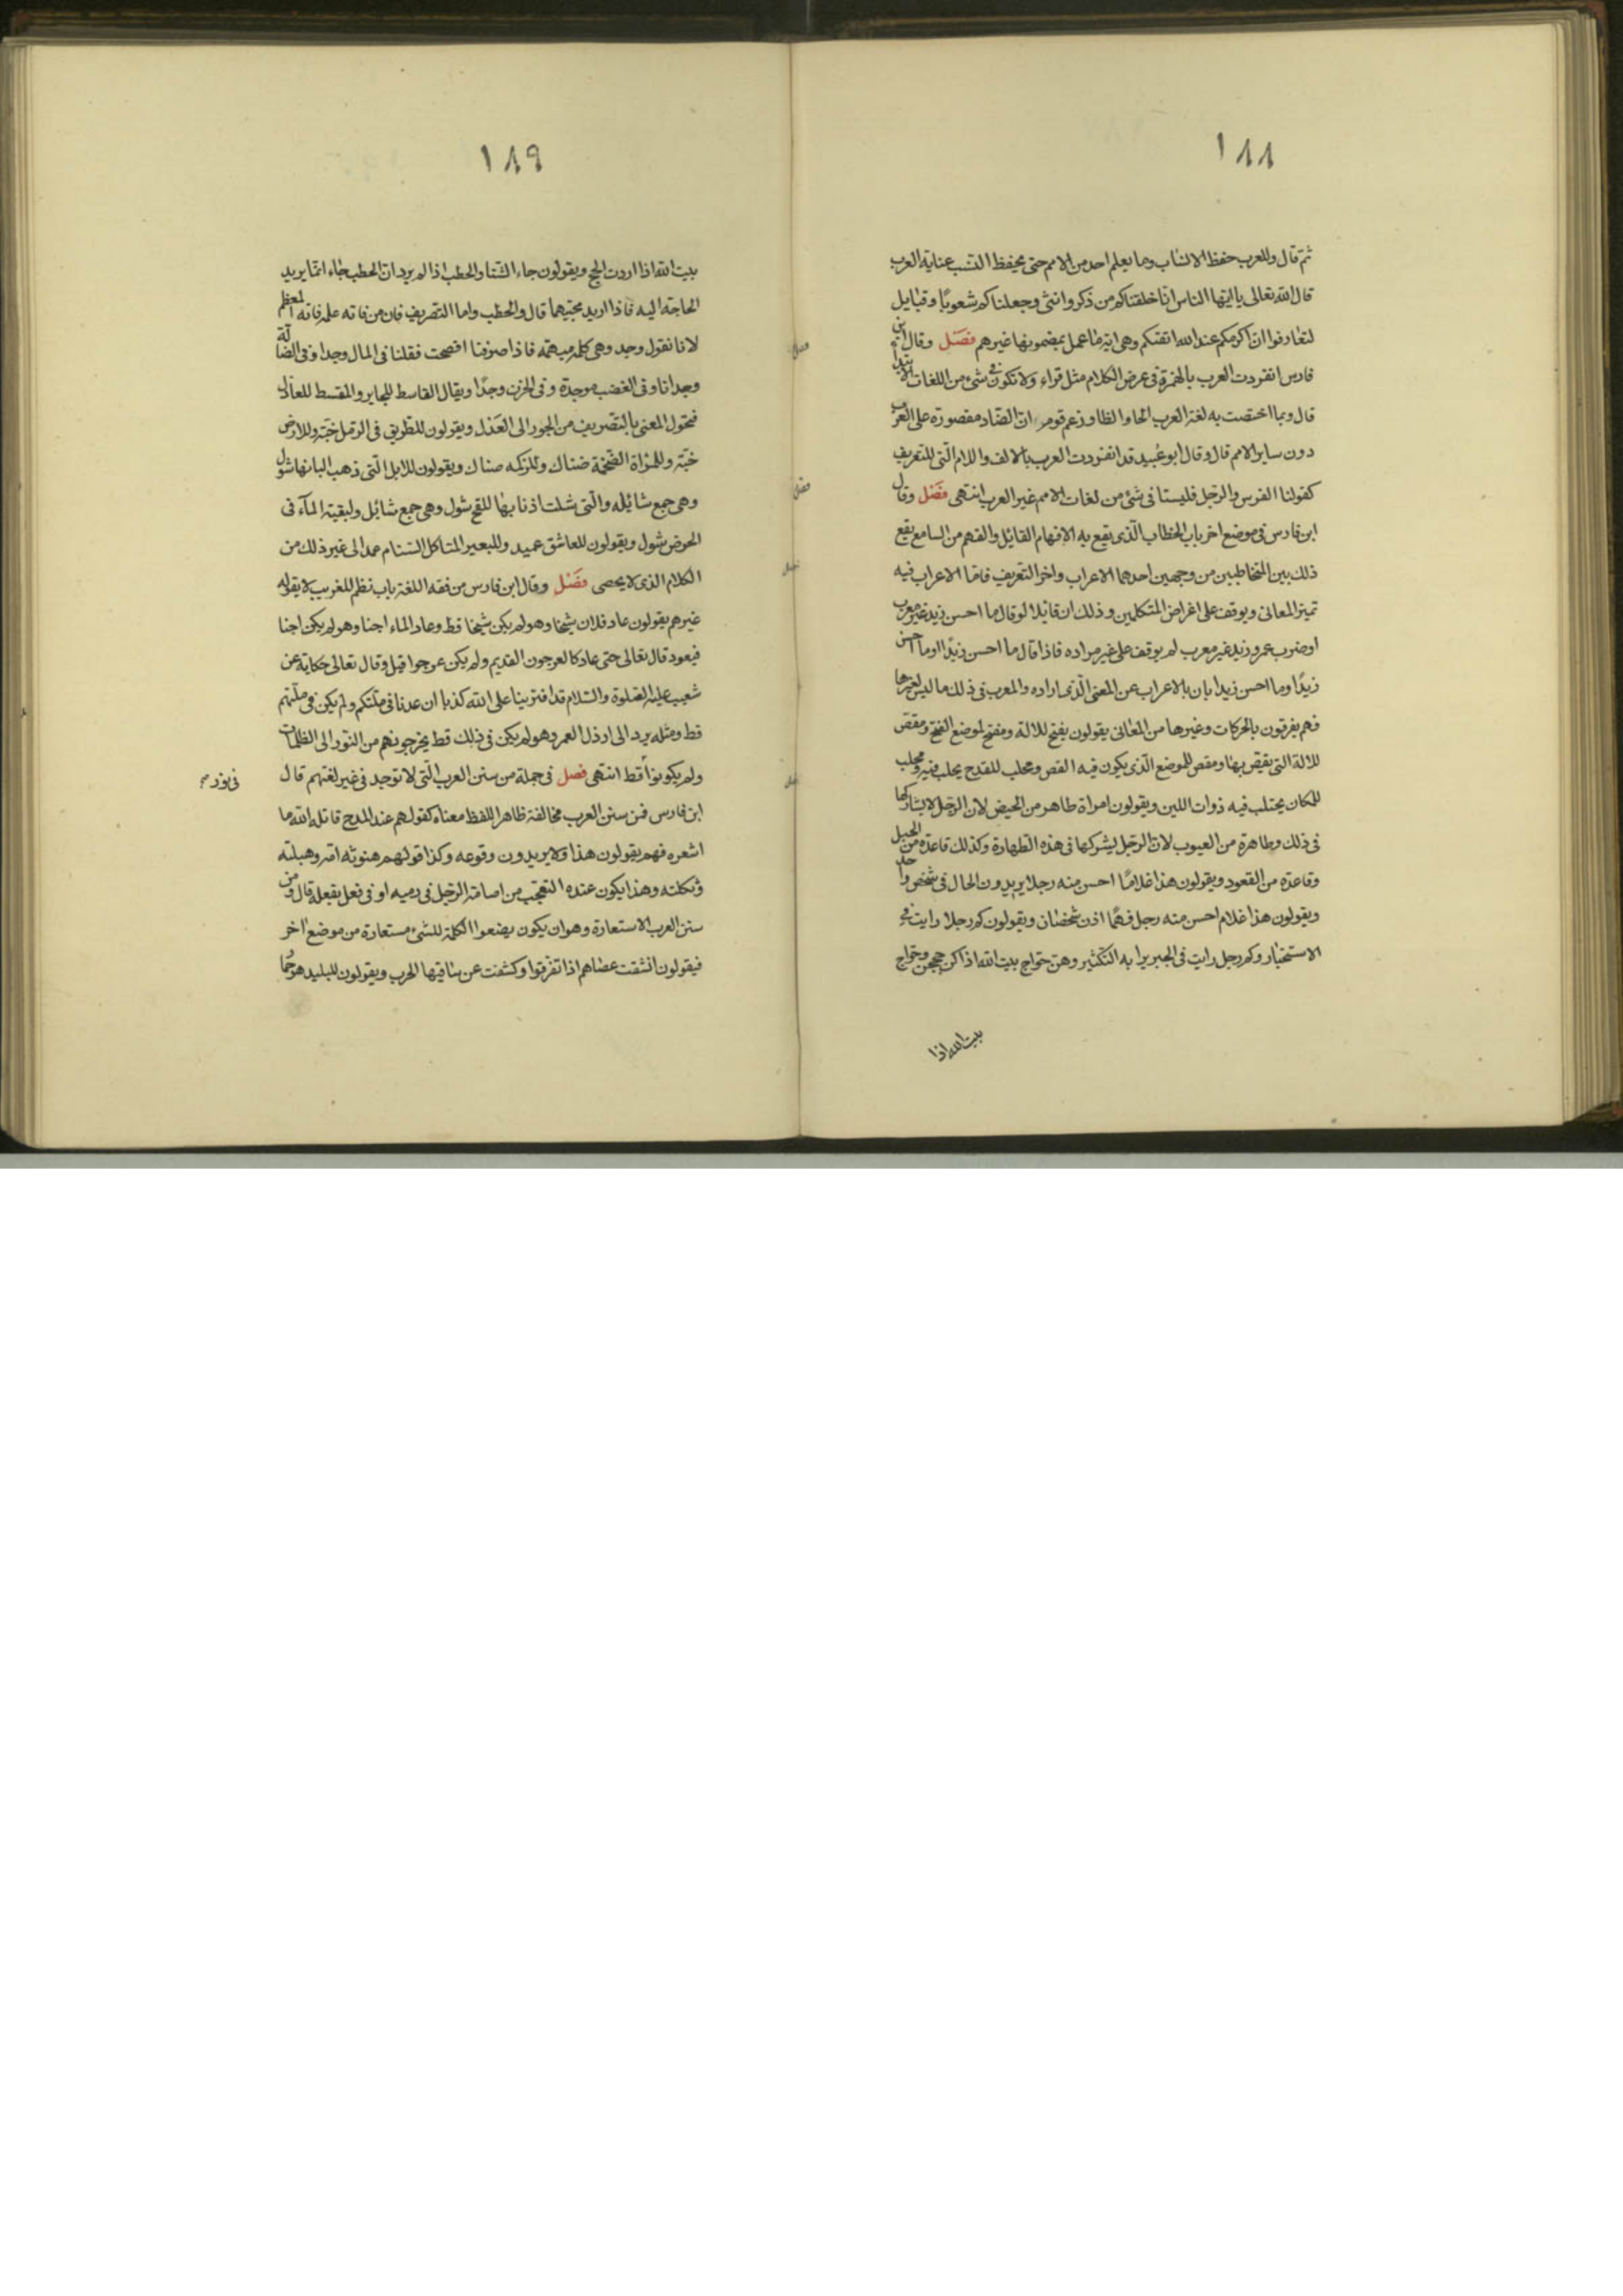 ١٨٨
ثم قال وللعرب حفظ الانساب وما يعلم احد من الامم حتى بحفظ النسب عناية العرب
قال الله تعالى يا ايها الناس انا خلقناكم من ذكر وانثى وجعلناكم شعوبا وقبايل
لتعارفوا ان اكرمكم عند الله اتقكم وهى اية ما عمل بمضمونها غيرهم فصل وقال ابن
فارس انفردت العرب بالهمزة فى عرض الكلام مثل قراء ولا تكون فى شئ من اللغات الا ابتداء
قال ومما اختصت به لغة العرب الحا والظا وزعم قوم ان الضاد مقصورة على العرب
دون ساير الامم قال وقال ابو عبيد قد انفردت العرب بالالف واللام التى للتعريف
كقولنا الفرس والرجل فليستا فى شئ من لغات الامم غير العرب انتهى فصل وقال
ابن فارس فى موضع اخر باب الخطاب الذى يقع به الافهام القايل والفهم من السامع يقع
ذلك بين المتخاطبين من وجهين احدهما الاعراب واخر التعريف فاما الاعراب فيه
تميز المعانى ويوقف على اغراض المتكلمين وذلك ان قايلا لو قال ما احسن زيد غير معرب
او ضرب عمرو زيد غير معرب لم يوقف على غير مراده فاذا قال ما احسن زيدا او ما احسن
زيدا وما احسن زيدا بان بالاعراب عن المعنى الذى اراده والعرب فى ذلك ما ليس لغيرها
فهم يفرقون بالحركات وغيرها من المعانى يقولون يفتح للالة ومفتح لموضع الفتح ومقص
للالة التى يقص بها ومقص للموضع الذى يكون فيه القص ومحلب للقدح يحلب فيه ومحلب
للمكان يحتلب فيه ذوات اللبن ويقولون امراة طاهر من الحيض لان الرجل لا يشاركها
فى ذلك وطاهرة من العيوب لان الرجل يشركها فى هذه الطهارة وكذلك قاعدة من الحبل
وقاعدة من القعود ويقولون هذا غلاما احسن منه رجلا يريدون الحال فى شخص واحد
ويقولون هذا غلام احسن منه رجل فهما اذن شخصان ويقولون كم رجلا رايت فى
الاستخبار وكم رجل رايت فى الخبر يرا به التكثير وهن حواج بيت الله اذا كن حججن وحواج
بيت الله اذا
فصل
فصل
فصل
١٨٩
بيت الله اذا اردت الحج ويقولون جاء الشتا والحطب اذا لم يرد ان الحطب جاء انما يريد
الحاجة اليه فاذا اريد مجيئهما قال والحطب واما التصريف فان من فاته علمه فاته المعظم
لانا نقول وجد وهى كلمه مبهمه فاذا صرفنا افصحت فقلنا فى المال وجدا وفى الضالة
وجدانا وفى الغضب موجدة وفى الحزن وجدا ويقال القاسط للجاير والمقسط للعادل
فتحول المعنى بالتصريف من الجور الى العدل ويقولون للطريق فى الرمل خبة وللارض
خبة وللمراة الضخمة ضناك وللزكمه ضناك ويقولون للابل التى ذهب البانها شول
وهى جمع شائله والتى شلت اذنابها للقح شول وهى جمع شائل ولبقية المآء فى
الحوض شول ويقولون للعاشق عميد وللبعير المتاكل السنام عمد الى غير ذلك من
الكلام الذى لا يحصى فصل وقال ابن فارس من فقه اللغة باب نظم للغريب لا يقوله
غيرهم يقولون عاد فلان شيخا وهو لم يكن شيخا قط وعاد الماء اجنا وهو لم يكن اجنا
فيعود قال تعالى حتى عاد كالعرجون القديم ولم يكن عرجوا قبل وقال تعالى حكاية عن
شعيب عليه الصلوة والسلام قد افترينا على الله كذبا ان عدنا فى ملتكم ولم يكن فى ملتهم
قط ومثله يرد الى ارذل العمر وهو لم يكن فى ذلك قط يخرجونهم من النور الى الظلمات
ولم يكونوا قط انتهى فصل فى جملة من سنن العرب التى لا توجد فى غير لغتهم قال
ابن فارس فمن سنن العرب مخالفة ظاهر اللفظ معناه كقولهم عند المدح قاتله الله ما
اشعره فهم يقولون هذا ولا يريدون وقوعه وكذا قولهم هوت امه وهبلته
وثكلته وهذا يكون عنده التعجب من اصابة الرجل فى رميه او فى فعل يفعله قال ومن
سنن العرب الاستعارة وهو ان يكون يضعوا الكلمة للشئ مستعارة من موضع اخر
فيقولون انشقت عصاهم اذا تفرقوا وكشفت عن ساقيها الحرب ويقولون للبليد هو حمار
فى نور